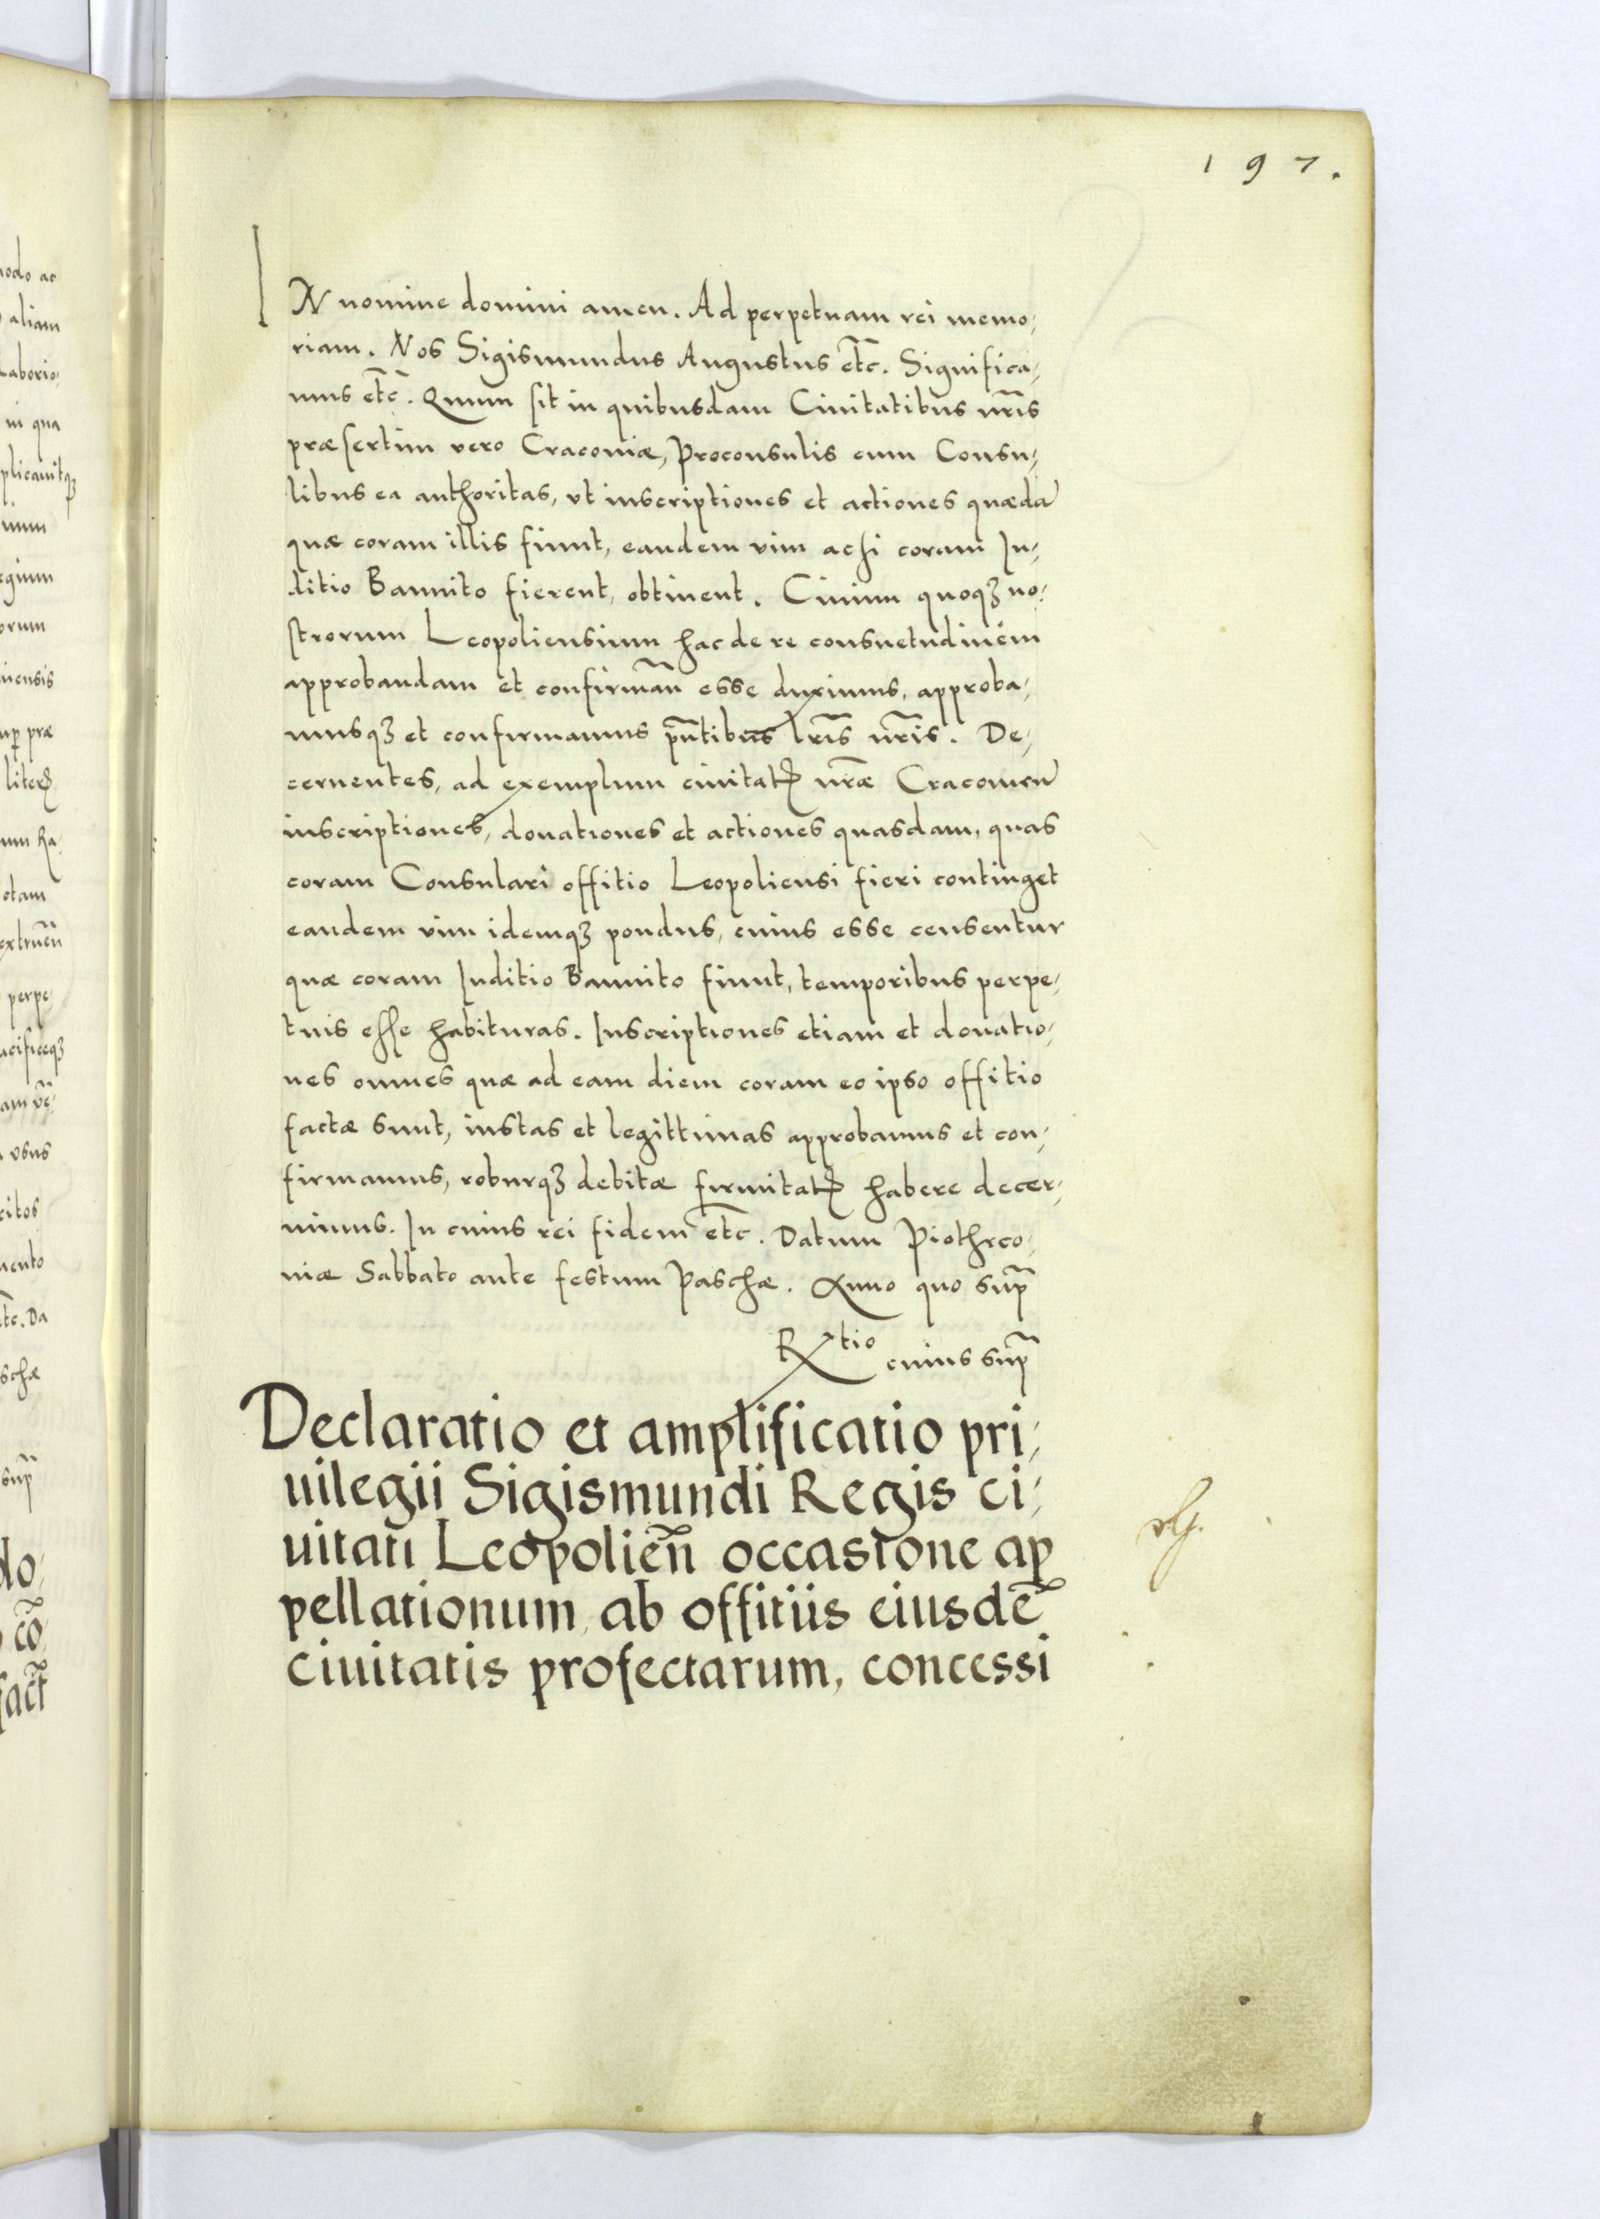 197.
IN nomine domini amen. Ad perpetuam rei memo,
riam. Nos Sigismundus Augustus etc̄. Significa,
mus etc̄. Quum sit in quibusdam Ciuitatibus nr̄is
præsertim vero Cracouiæ, Proconsulis cum Consu,
libus ea authoritas, vt inscriptiones et actiones quædã
quæ coram illis fiunt, eandem vim ac si coram Iu,
ditio Bannito fierent, obtinent. Ciuium quoqꝫ no,
strorum Leopoliensium hac de re consuetudinem
approbandam et confirmañ esse duximus, approba,
musqꝫ et confirmamus pñtibus lr̄is nr̄is. De,
cernentes, ad exemplum ciuitatꝭ nr̄æ Cracouieñ
inscriptiones, donationes et actiones quasdam, quas
coram Consulari offitio Leopoliensi fieri continget
eandem vim idemqꝫ pondus, cuius esse censentur
quæ coram Iuditio Bannito fiunt, temporibus perpe,
tuis esse habituras. Inscriptiones etiam et donatio,
nes omnes quæ ad eam diem coram eo ipso offitio
factæ sunt, iustas et legittimas approbamus et con,
firmamus, roburqꝫ debitæ firmitatꝭ habere decer,
nimus. In cuius rei fidem etc̄. Datum Piothrco,
uiæ Sabbato ante festum Paschæ. Anno quo sup̄
Rtio cuius sup̄
Declaratio et amplificatio pri,
uilegii Sigismundi Regis ci,
uitati Leopolieñ occasione ap
pellationum ab offitiis eiusdē
ciuitatis profectarum, concessi